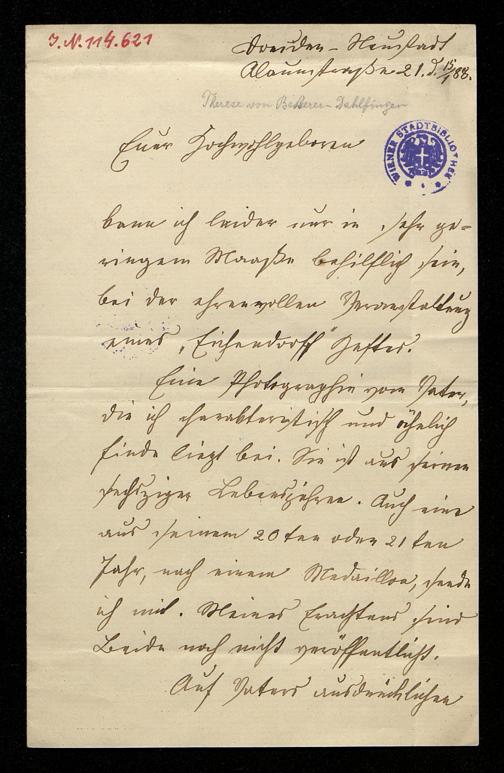 J.N. 114.621
Dresden-Neustadt
Alaunstraße 21. d. 15/1 88.
Therese von Besserer-Dahlfingen
WIENER STADTBIBLIOTHEK
Euer Hochwohlgeboren
kann ich leider nur in sehr ge-
ringem Maaße behilflich sein,
bei der ehrenvollen Veranstaltung
eines „Eichendorff" Heftes.
Eine Photographie vom Vater,
die ich charakteristisch und ähnlich
finde liegt bei. Sie ist aus seinen
sechsziger Lebensjahren. Auch eine
aus seinem 20ten oder 21ten
Jahr, nach einem Medaillon, sende
ich mit. Meines Erachtens sind
Beide noch nicht veröffentlicht.
Auf Vaters ausdrücklichen